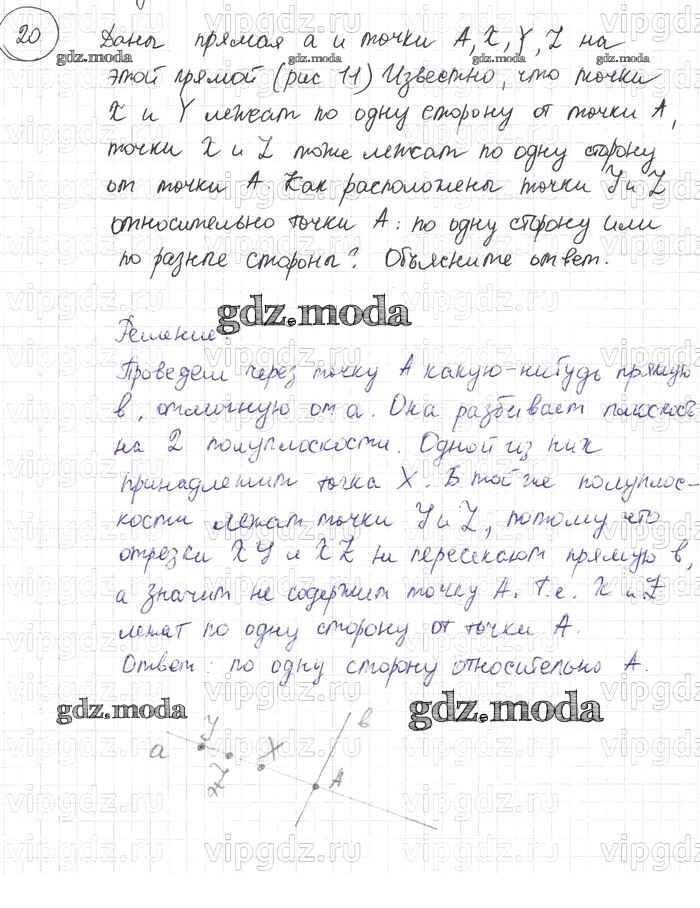 20
Даны прямая а и точки A, X, Y, Z на
этой прямой (рис 11) Известно, что точки
X и Y лежат по одну сторону от точки A,
точки X и Z тоже лежат по одну сторону
от точки A. Как расположены точки Y и Z
относительно точки A: по одну сторону или
по разные стороны? Объясните ответ.
gdz.moda
Решение:
Проведем через точку A какую-нибудь прямую
в, отличную от а. Она разбивает плоскость
на 2 полуплоскости. Одной из них
принадлежит точка X. В той же полуплос-
кости лежат точки Y и Z, потому что
отрезки XY и XZ не пересекают прямую в,
а значит не содержит точку A. Т.е. X и Z
лежат по одну сторону от точки A.
Ответ: по одну сторону относительно A.
gdz.moda gdz.moda
а Y Z X A в
vipgdz.ru